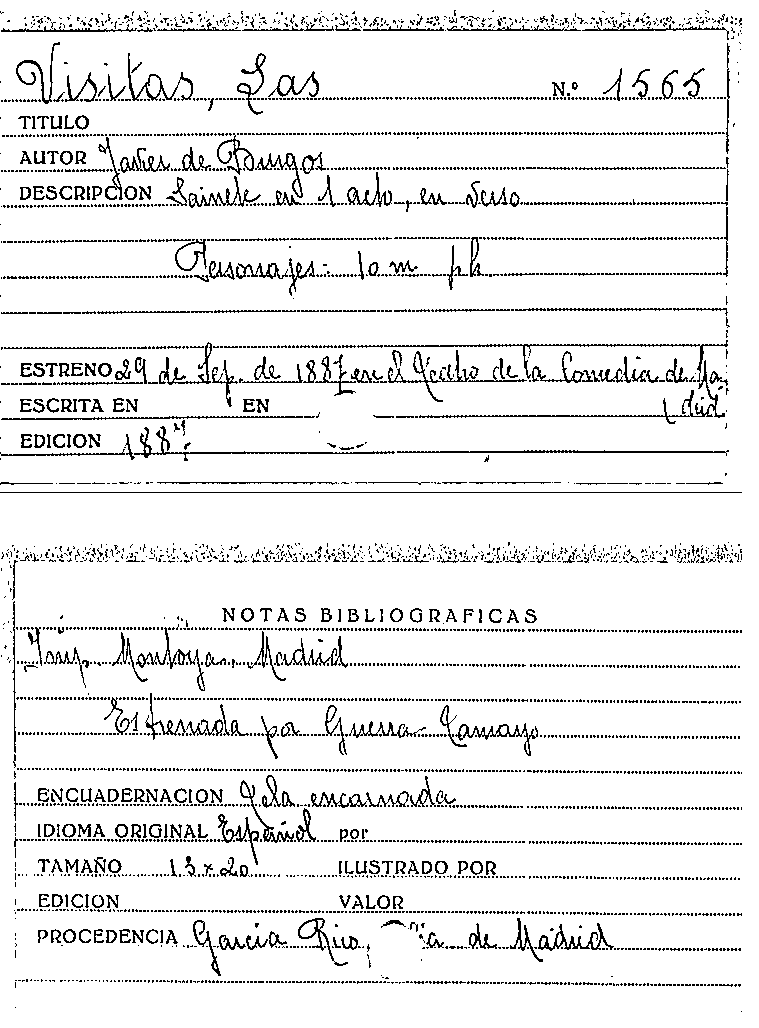 Visitas, Las N.º 1565
TITULO
AUTOR Javier de Burgos
DESCRIPCION Sainete en 1 acto, en verso
Personajes= 10 m. ph.
ESTRENO 29 de Sep. de 1887 en el Teatro de la Comedia de Ma-
ESCRITA EN EN drid
EDICION 1887
NOTAS BIBLIOGRAFICAS
Imp. Montoya. Madrid
Estrenada por Guerra-Tamayo
ENCUADERNACION Tela encarnada
IDIOMA ORIGINAL Español por
TAMAÑO 13 x 20 ILUSTRADO POR
EDICION VALOR
PROCEDENCIA García Rico, de Madrid